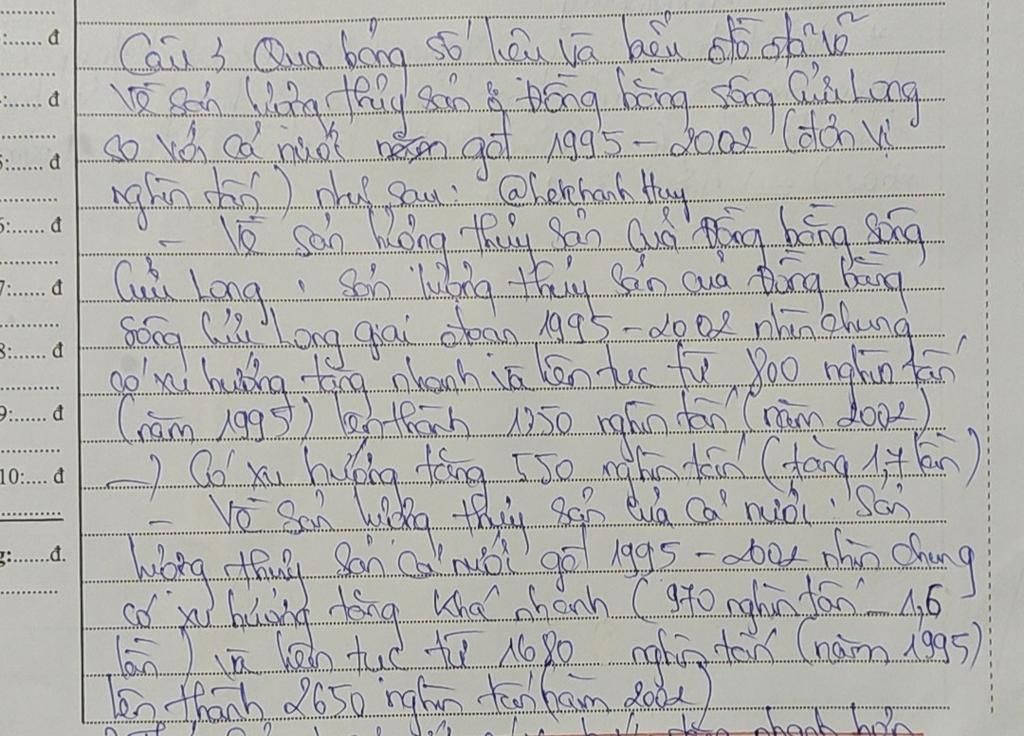 :...... đ
:...... đ
5:...... đ
6:...... đ
7:...... đ
8:...... đ
9:...... đ
10:.... đ
g:......đ.
Câu 3 Qua bảng số liệu và biểu đồ đã vẽ
về sản lượng thủy sản ở Đồng bằng sông Cửu Long
so với cả nước gđ 1995 – 2002 (đơn vị
nghìn tấn) như sau: @lekhanhHuy
– Về sản lượng thủy sản của Đồng bằng sông
Cửu Long, sản lượng thủy sản của Đồng bằng
sông Cửu Long giai đoạn 1995 – 2002 nhìn chung
có xu hướng tăng nhanh và liên tục từ 800 nghìn tấn
(năm 1995) lên thành 1350 nghìn tấn (năm 2002)
→ Có xu hướng tăng 550 nghìn tấn (tăng 1,7 lần)
– Về sản lượng thủy sản của cả nước, sản
lượng thủy sản cả nước gđ 1995 – 2002 nhìn chung
có xu hướng tăng khá nhanh (970 nghìn tấn – 1,6
lần) và liên tục từ 1680 nghìn tấn (năm 1995)
lên thành 2650 nghìn tấn (năm 2002)
nhanh hơn